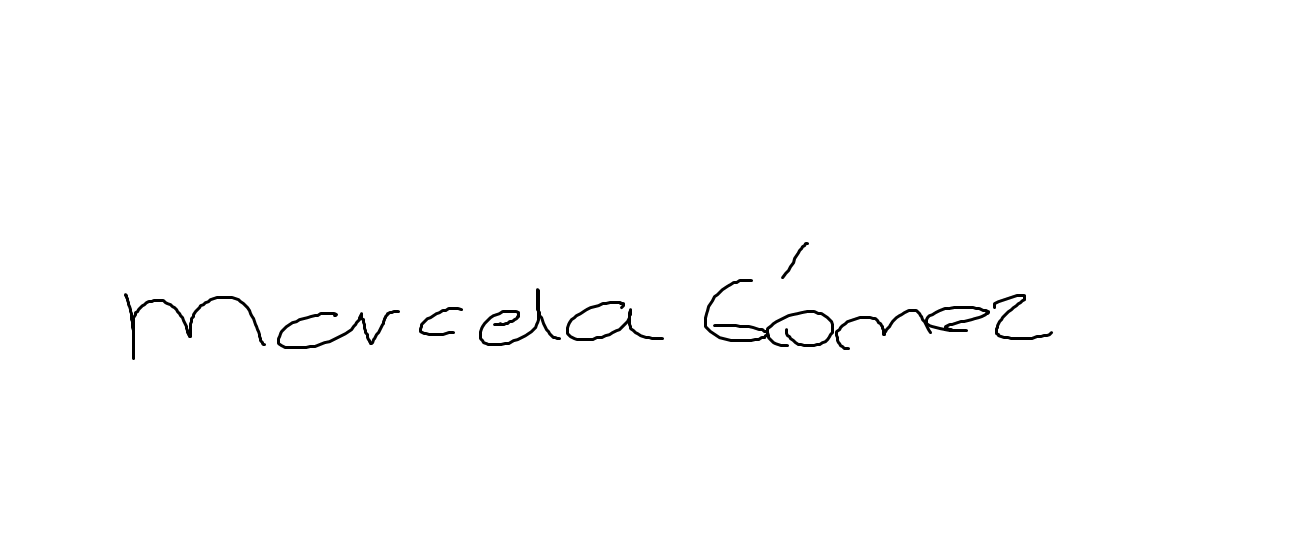 Marcela Gómez